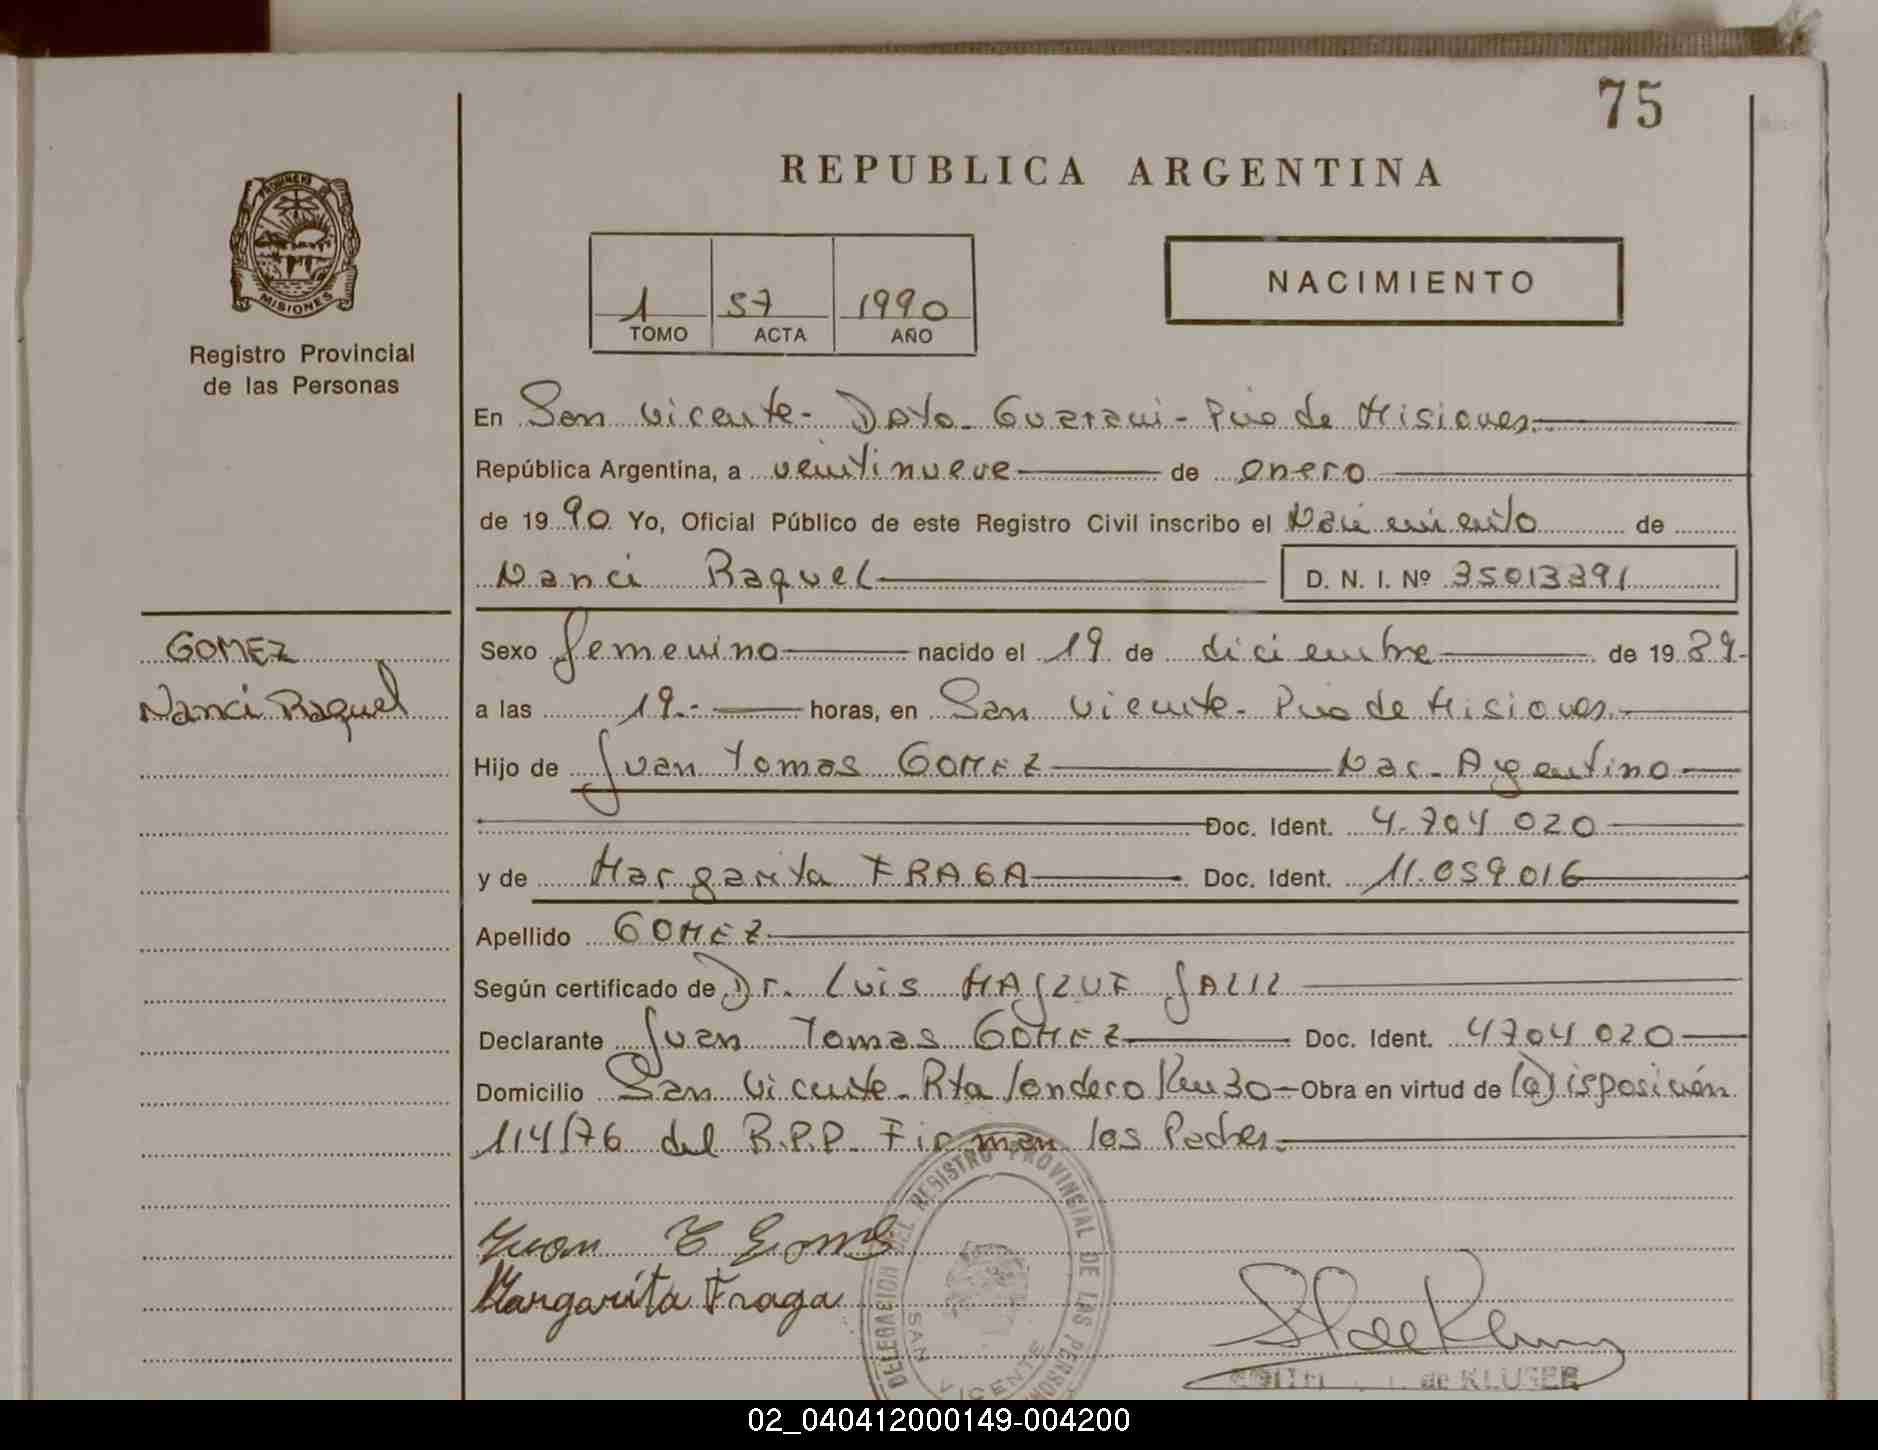 75
REPUBLICA ARGENTINA
MISIONES
Registro Provincial
de las Personas
1 57 1990
TOMO ACTA AÑO
NACIMIENTO
En San Vicente - Dpto. Guarani - Pcia de Misiones.
República Argentina, a veintinueve de enero
de 19 90 Yo, Oficial Público de este Registro Civil inscribo el Nacimiento de
Nanci Raquel D. N. I. Nº 35013391
GOMEZ
Nanci Raquel
Sexo femenino nacido el 19 de diciembre de 19 89.
a las 19.- horas, en San Vicente - Pcia de Misiones.
Hijo de Juan Tomas GOMEZ Nac. Argentino
Doc. Ident. 4.704 020
y de Margarita FRAGA Doc. Ident. 11.059016
Apellido GOMEZ
Según certificado de Dr. Luis JALIL
Declarante Juan Tomas GOMEZ Doc. Ident. 4704 020
Domicilio San Vicente - Rta Londero Km 30 - Obra en virtud de (a) Disposición
114/76 del R.P.P. Firman los Padres.
Juan T Gomes
Margarita Fraga
DELEGACION DEL REGISTRO PROVINCIAL DE LAS PERSONAS
SAN VICENTE
de KLUSER
02_040412000149-004200